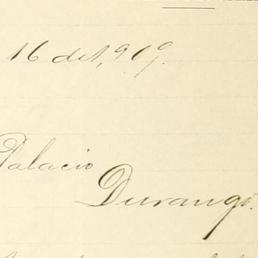 16 de 1,919.
Palacio
Durango.